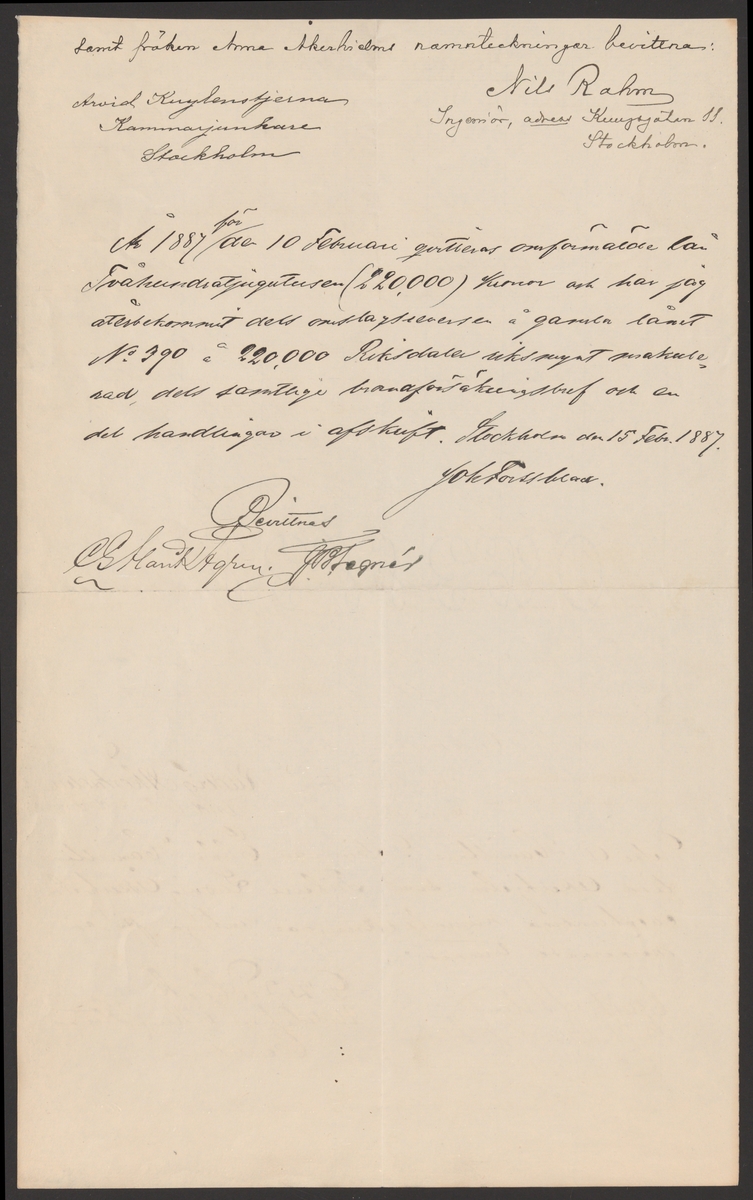 samt fröken Anna Åkerhielms namnteckningar bevittna:
Arvid Kuylenstjerna
Kammarjunkare
Stockholm
Nils Rahm
Ingeniör, adress Kungsgatan 55.
Stockholm.
År 1887 för den 10 Februari qvitteras omförmälde lån
Tvåhundratjugutusen (220,000) Kronor och har jag
återbekommit dels omslagsreversen å gamla lånet
No 390 å 220,000 Riksdaler riksmynt makule-
rad, dels samtlige brandförsäkringsbref och en
del handlingar i afskrift. Stockholm den 15 Febr. 1887.
Joh Forssblad.
Bevittnas